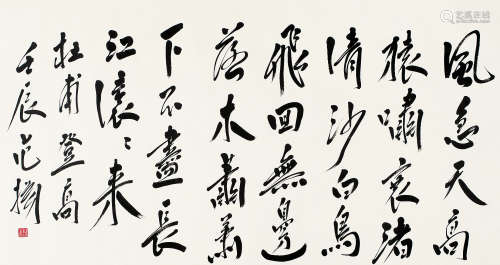 風急天高
猿嘯哀渚
清沙白鳥
飛回無邊
落木蕭蕭
下不盡長
江滾〻来
杜甫登高
壬辰范揚